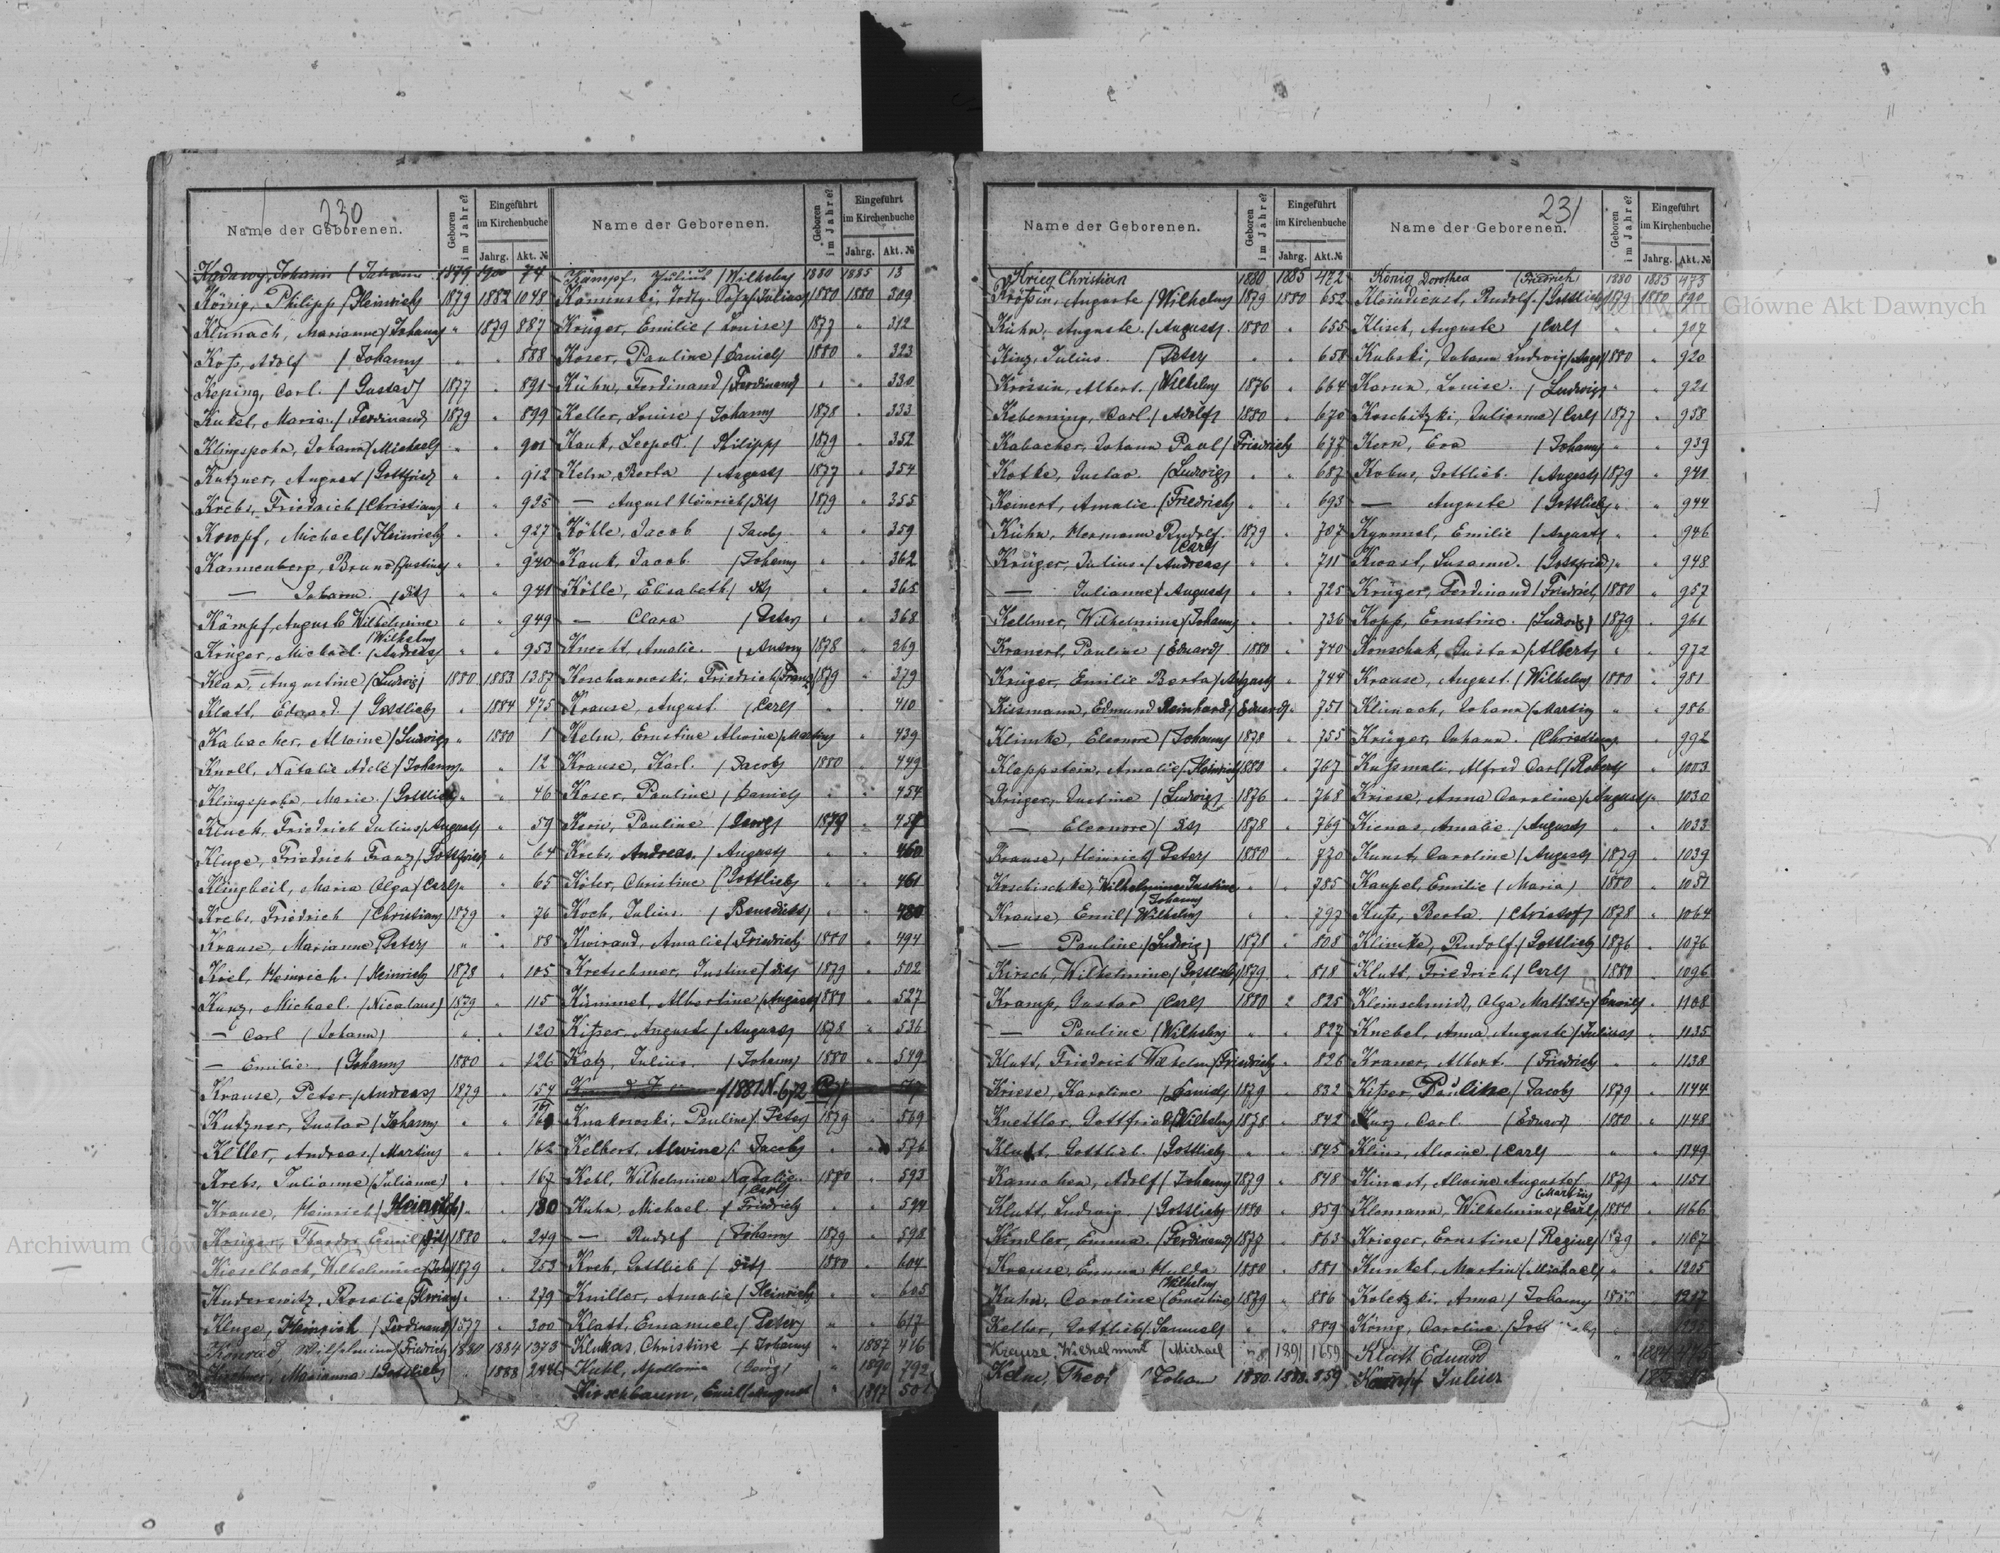 230
Name der Geborenen.
Geboren im Jahre?
Eingeführt im Kirchenbuche
Jahrg. Akt. №
Johann (Johann 1879 74
König, Philipp (Heinrich) 1879 1882 1048
Klunach, Marianne (Johann) " 1879 887
Adolf (Johann) " " 888
Keping, Carl (Gustav) 1877 " 891
Kukel, Maria (Ferdinand) 1879 " 899
Klingspohn, Johann (Michael) " " 901
Kutzner, August (Gottfried) " " 912
Krebs, Friedrich (Christian) " " 925
Knopf, Michael (Heinrich) " " 927
Kannenberg, Bruno (Justine) " " 940
— Johann (dito) " " 941
Kämpf, August Wilhelmine (Wilhelm) " " 949
Krüger, Michael (Andreas) " " 953
Klan, Augustine (Ludwig) 1880 1883 1387
Klatt, Eduard (Gottlieb) " 1884 475
Kabacher, Alwine (Ludwig) " 1880 1
Knoll, Natalie Adele (Johann) " " 12
Klingspohn, Marie (Gottlieb) " " 46
Kluck, Friedrich Julius (August) " 59
Kluge, Friedrich Franz (Gottfried) " 64
Klingbeil, Maria Olga (Carl) " " 65
Krebs, Friedrich (Christian) 1879 " 76
Krause, Marianne (Peter) " " 88
Kiel, Heinrich (Heinrich) 1878 " 105
Kunz, Michael (Nicolaus) 1879 " 115
— Carl (Johann) " " 120
— Emilie (Johann) 1880 " 126
Krause, Peter (Andreas) 1879 " 154
Kutzner, Gustav (Johann) " "
Keller, Andreas (Martin) " " 162
Krebs, Julianne (Julianne) " " 167
Krause, Heinrich (Heinrich) " " 180
Krüger, Theodor Emil (dito) 1880 " 249
Kieselbach, Wilhelmine (Joh.) 1879 " 253
Kuderewitz, Rosalie (Florian) " " 279
Kluge, Heinrich (Ferdinand) 1877 " 300
Konrad, Wilhelmine (Friedrich) 1880 1884 1373
Kirschner, Marianna (Gottlieb) " 1888
Name der Geborenen.
Geboren im Jahre?
Eingeführt im Kirchenbuche
Jahrg. Akt. №
Kämpf, Julius (Wilhelm) 1880 1885 13
Kaminski, (Julius) 1880 1880 309
Krüger, Emilie (Louise) 1877 " 312
Koser, Pauline (Daniel) 1880 " 323
Kühn, Ferdinand (Ferdinand) " " 330
Keller, Louise (Johann) 1878 " 333
Kauk, Leopold (Philipp) 1879 " 352
Kelm, Berta (August) 1877 " 354
— August Heinrich (dito) 1879 " 355
Köhle, Jacob (Jacob) " " 359
Kauk, Jacob (Johann) " " 362
Köhle, Elisabeth (dto) " " 365
— Clara (Peter) " " 368
Knott, Amalie 1878 " 369
Koschanowski, Friedrich (Franz) 1879 " 379
Krause, August (Carl) " " 410
Kelm, Ernstine Alwine (Martin) " 439
Krause, Karl (Jacob) 1880 " 449
Koser, Pauline (Daniel) " " 454
Kern, Pauline (Georg) 1879 "
Krebs, Andreas (August) " " 460
Köler, Christine (Gottlieb) " " 461
Koch, Julius (Benedikt) " " 480
Kwirand, Amalie (Friedrich) 1880 " 494
Kretschmer, Justine (dito) 1879 " 502
Kümmel, Albertine (August) 1880 " 527
Kitzer, August (August) 1878 " 536
Katz, Julius (Johann) 1880 " 549
1881 N. 672
Knakowski, Pauline (Peter) 1879 " 569
Kelbert, Alwine (Jacob) " " 576
Kebl, Wilhelmine Natalie (Carl) 1880 " 593
Kuhn, Michael (Friedrich) " " 594
— Rudolf (Johann) 1879 " 598
Kreb, Gottlieb (dito) 1880 " 604
Kniller, Amalie (Heinrich) " " 605
Klatt, Emanuel (Peter) " " 617
Klukas, Christine (Johann) " 1887 416
Kubl, Apollonia (Georg) " 1890 792
Kirschbaum, Emil (August) " 1897
231
Name der Geborenen.
Geboren im Jahre?
Eingeführt im Kirchenbuche
Jahrg. Akt. №
Krieg Christian 1880 1885 472
Krösin, Auguste (Wilhelm) 1879 1880 652
Kühn, Auguste (August) 1880 " 655
Kinz, Julius (Peter) " " 658
Krösin, Albert (Wilhelm) 1876 " 664
Keberning, Carl (Adolf) 1880 " 670
Kabacher, Johann Paul (Friedrich) " 677
Kotke, Gustav (Ludwig) " " 687
Keinert, Amalie (Friedrich) " " 693
Kühn, Hermann Rudolf (Carl) 1879 " 707
Krüger, Julius (Andreas) " " 711
— Julianne (August) " " 725
Kellmer, Wilhelmine (Johann) " " 736
Kranert, Pauline (Eduard) 1880 " 740
Krüger, Emilie Berta (August) " 744
Kissmann, Edmund Reinhard (Eduard) " 751
Klimke, Eleonore (Johann) 1878 " 755
Klappstein, Amalie (Heinrich) 1880 " 767
Krüger, Justine (Ludwig) 1876 " 768
— Eleonore (dto) 1878 " 769
Krause, Heinrich (Peter) 1880 " 770
Koschischke, Wilhelmine Justine (Johann) " " 785
Krause, Emil (Wilhelm) " " 797
— Pauline (Ludwig) 1878 " 808
Kirsch, Wilhelmine (Gottlieb) 1879 " 818
Kramp, Gustav (Carl) 1880 " 825
— Pauline (Wilhelm) " " 827
Klatt, Friedrich Wilhelm (Friedrich) " 826
Kriese, Karoline (Daniel) 1879 " 832
Knettler, Gottfried (Wilhelm) 1878 " 842
Klatt, Gottlieb (Gottlieb) " " 845
Kamahn, Adolf (Johann) 1879 " 848
Klatt, Ludwig (Gottlieb) 1880 " 859
Kindler, Emma (Ferdinand) 1877 " 863
Krause, Emma Hulda (Wilhelm) 1880 " 881
Kuhn, Caroline (Ernstine) 1879 " 886
Keller, Gottlieb (Samuel) " " 889
Krause, Wilhelmine (Michael) " 1891 1659
Kelm, 1880 1880 859
Name der Geborenen.
Geboren im Jahre?
Eingeführt im Kirchenbuche
Jahrg. Akt. №
König Dorothea (Friedrich) 1880 1885 473
Kleindienst, Rudolf (Gottlieb) 1879 1880 890
Klisch, Auguste (Carl) " " 907
Kubski, Johann Ludwig (August) 1880 " 920
Korun, Louise (Ludwig) " " 921
Koschitzki, Julianne (Carl) 1877 " 938
Kern, Eva (Johann) " " 939
Kobus, Gottlieb (August) 1879 " 941
— Auguste (Gottlieb) " " 944
Emilie (August) " " 946
Kwast, Susanna (Gottfried) " " 948
Krüger, Ferdinand (Friedrich) 1880 " 957
Kopp, Ernstine (Ludwig) 1879 " 961
Konschak, Gustav (Albert) " " 972
Krause, August (Wilhelm) 1880 " 981
Klimach, Johann (Martin) " " 986
Krüger, Johann (Christian) " " 992
Alfred Carl (Robert) " 1003
Kriese, Anna Caroline (August) " 1030
Kienas, Amalie (August) " " 1033
Kunst, Caroline (August) 1879 " 1039
Kaupel, Emilie (Maria) 1880 " 1051
Berta (Christof) 1878 " 1064
Klimke, Rudolf (Gottlieb) 1876 " 1076
Klatt, Friedrich (Carl) 1880 " 1096
Kleinschmidt, Olga Mathilde (Emil) " 1108
Knebel, Anna Auguste (Julius) " 1135
Kraner, Albert (Friedrich) " " 1138
Kitzer, Pauline (Jacob) 1879 " 1144
Kurz, Carl (Eduard) 1880 " 1148
Klinn, Alwine (Carl) " " 1149
Kinast, Alwine Auguste (Martin) 1879 " 1151
Klomann, Wilhelmine (Carl) 1880 " 1166
Krieger, Ernstine (Regine) 1879 " 1167
Kunkel, Martin (Michael) " " 1205
Koletzki, Anna (Johann)
König, Caroline
Klatt Eduard
Julius
Archiwum Główne Akt Dawnych
Archiwum Główne Akt Dawnych